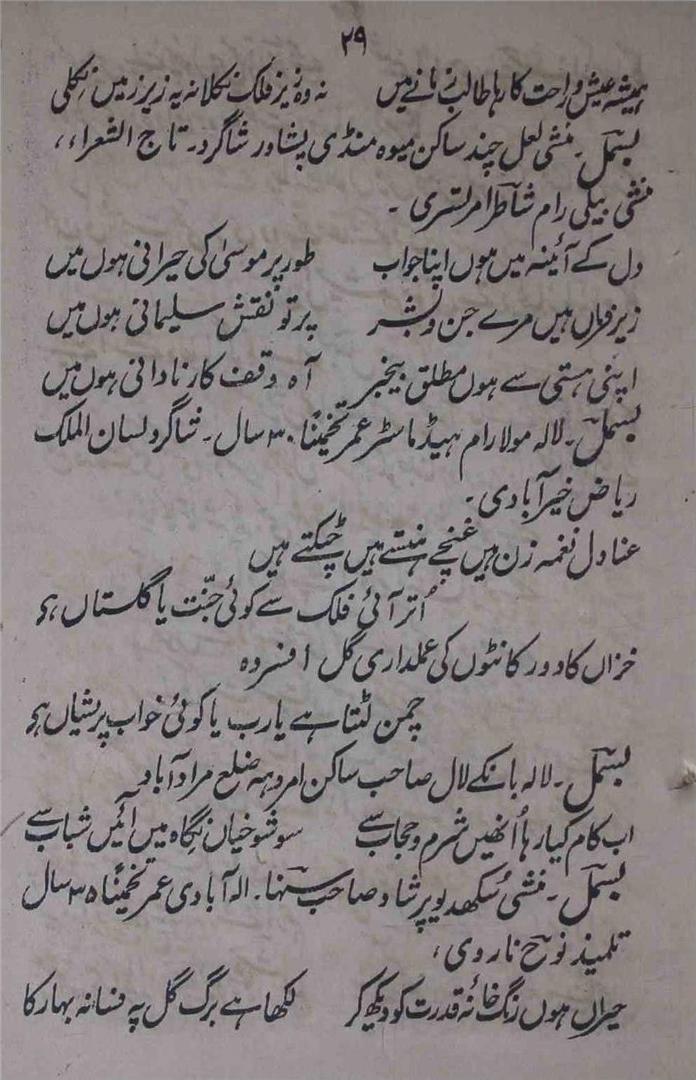 ۲۹
ہمیشہ عیش و راحت کا رہا طالب زمانے میں نہ وہ زیر فلک نکلا نہ یہ زیر زمیں نکلی
بسمل۔ منشی لعل چند ساکن میوہ منڈی پشاور شاگرد۔ تاج الشعراء،،
منشی بیلی رام شاطر امرتسری۔
دل کے آئینہ میں ہوں اپنا جواب طور پر موسیٰ کی حیرانی ہوں میں
زیر فرماں ہیں مرے جن و بشر پرتو نقش سلیمانی ہوں میں
اپنی ہستی سے ہوں مطلق بیخبر آہ وقف کار نادانی ہوں میں
بسمل۔ لالہ مولا رام ہیڈ ماسٹر عمر تخمیناً ۳۰ سال۔ شاگرد لسان الملک
ریاض خیرآبادی۔
عنادل نغمہ زن ہیں غنچے ہنستے ہیں چٹکتے ہیں
اُتر آئی فلک سے کوئی جنّت یا گلستاں ہے
خزاں کا دور کانٹوں کی عملداری گل افسردہ
چمن لٹتا ہے یارب یا کوئی خواب پریشاں ہے
بسمل۔ لالہ بانکے لال صاحب ساکن امروہہ ضلع مرادآباد
اب کام کیا رہا اُنھیں شرم و حجاب سے سو شوخیاں نگاہ میں آئیں شباب سے
بسمل۔ منشی سُکھدیو پرشاد صاحب سنہا۔ الہ آبادی عمر تخمیناً ۳۵ سال
تلمیذ نوح ناروی،
حیراں ہوں رنگ خانۂ قدرت کو دیکھ کر لکھا ہے برگ گل پہ فسانہ بہار کا